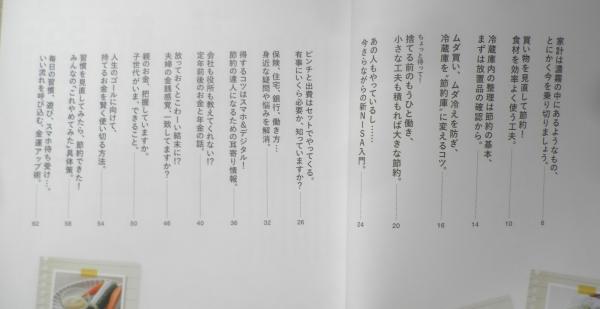 家計は濃霧の中にあるようなもの、
とにかく今を乗り切りましょう。
8
買い物を見直して節約！
食材を効率よく使う工夫。
10
冷蔵庫内の整理は節約の基本、
まずは放置品の確認から。
14
ムダ買い、ムダ冷えを防ぎ、
冷蔵庫を“節約庫”に変えるコツ。
16
ちょっと待って！
捨てる前のもうひと働き、
小さな工夫も積もれば大きな節約。
20
あの人もやっているし……
今さらながらの新NISA入門。
24
ピンチと出費はセットでやってくる。
有事にいくら必要か、知っていますか？
26
保険、住宅、銀行、働き方…
身近な疑問や悩みを解消。
32
得するコツはスマホ&デジタル！
節約の達人になるための耳寄り情報。
36
会社も役所も教えてくれない!?
定年前後のお金と年金の話。
40
放っておくとこわーい結末に!?
夫婦の金銭感覚、一致してますか？
46
親のお金、把握していますか。
子世代がいま、できること。
50
人生のゴールに向けて、
持てるお金を賢く使い切る方法。
54
習慣を見直してみたら、節約できた！
みんなの、“これやめてみた”具体策。
58
毎日の習慣、遊び、スマホ待ち受け…。
いい流れを呼び込む、金運アップ術。
62